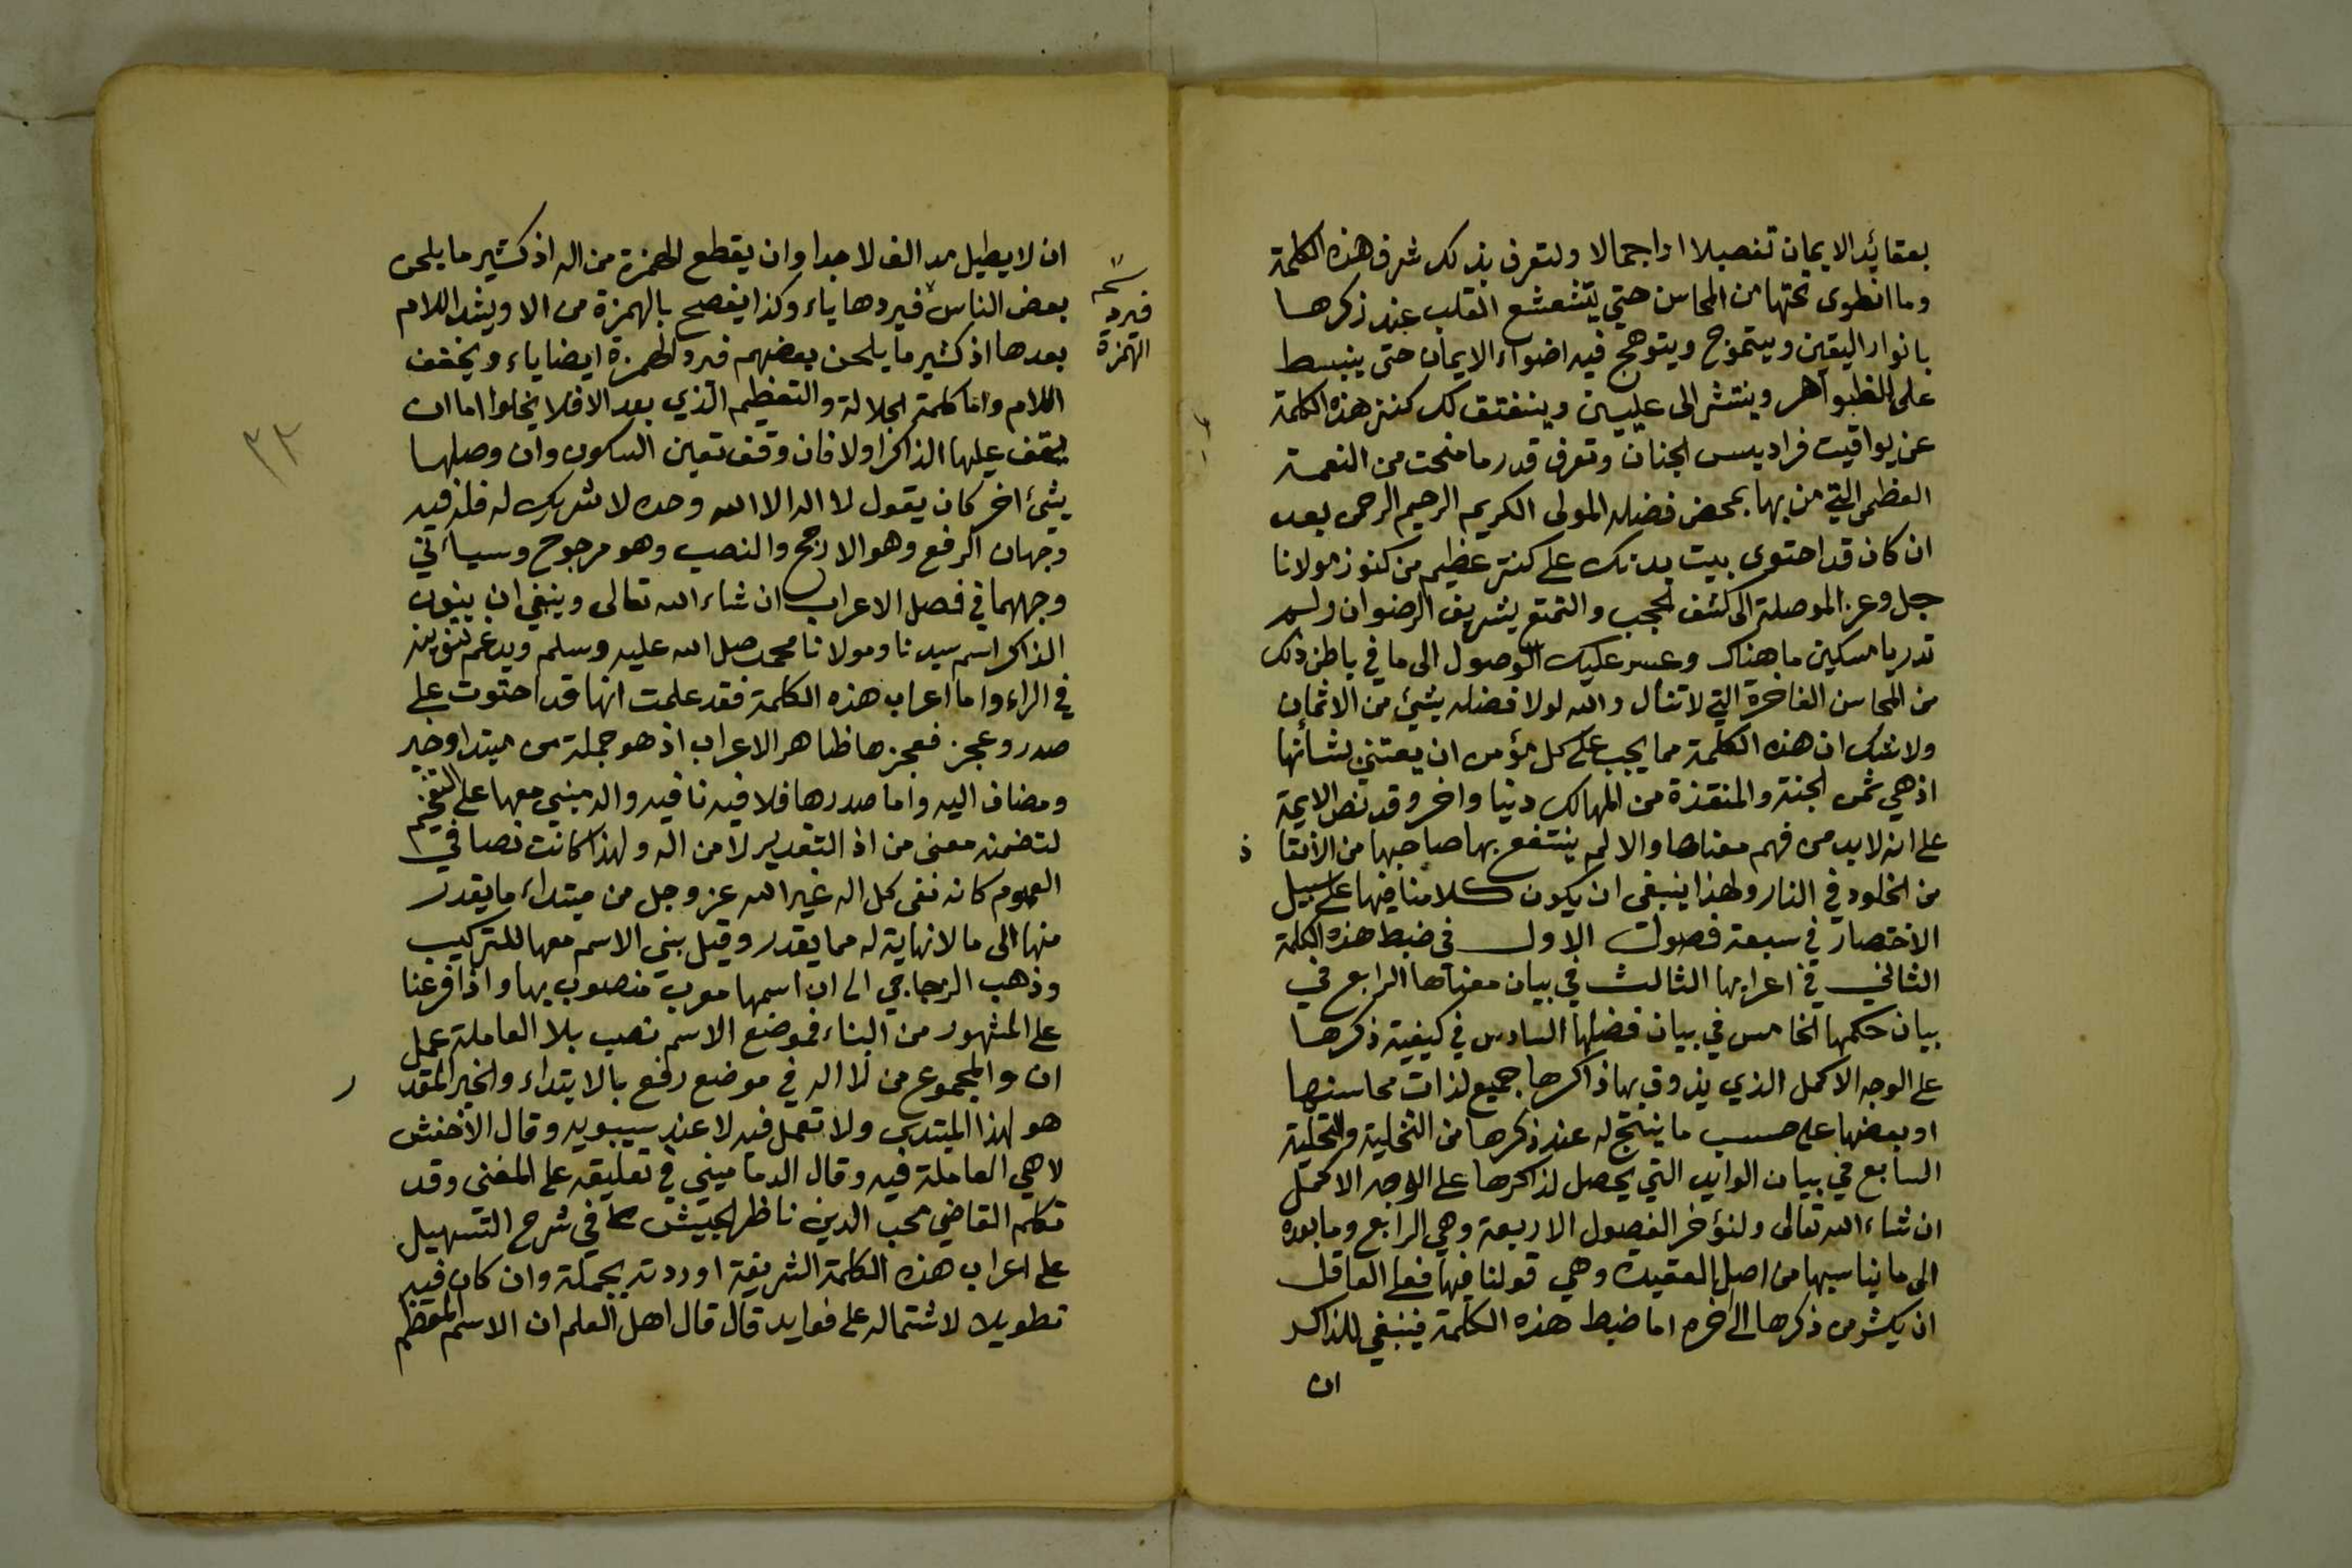 بعقائد الايمان تفصيلا او اجمالا ولتعرف بذلك شرف هذه الكلمة
وما انطوى تحتها من المحاسن حتي يتشعشع القلب عند ذكرها
بانوار اليقين ويتموج ويتوهج فيه اضواء الايمان حتى ينبسط
على الظواهر وينتشر الى عليين وينفتق لك كنز هذه الكلمة
عن يواقيت فراديس الجنان وتعرف قدر ما منحت من النعمة
العظمى التي من بها بمحض فضله المولى الكريم الرحيم الرحمن بعد
ان كان قد احتوى بيت بدنك على كنز عظيم من كنوز مولانا
جل وعز الموصلة الى كشف الحجب والتمتع بشريف الرضوان ولم
تدر يا مسكين ما هناك وعسر عليك الوصول الى ما في باطن ذلك
من المحاسن الفاخرة التي لا تنال والله لولا فضله بشيء من الاثمان
ولا شك ان هذه الكلمة مما يجب على كل مؤمن ان يعتني بشانها
اذ هي ثمن الجنة والمنقذة من المهالك دنيا واخر وقد نص الايمة
على انه لا بد من فهم معناها والا لم ينتفع بها صاحبها من الانقا ذ
من الخلود في النار ولهذا ينبغى ان يكون كلامنا فيها على سبيل
الاختصار في سبعة فصول الاول في ضبط هذه الكلمة
الثاني في اعرابها الثالث في بيان معناها الرابع في
بيان حكمها الخامس في بيان فضلها السادس في كيفية ذكرها
على الوجه الاكمل الذي يذوق بها ذاكرها جميع لذات محاسنها
او بعضها على حسب ما ينتج له عند ذكرها من التخلية والتحلية
السابع في بيان الوايد التي يحصل لذاكرها على الوجه الاكمل
ان شاء الله تعالى ولنؤخر الفصول الاربعة وهي الرابع وما بعده
الى ما يناسبها من اصل العقيدة وهي قولنا فيها فعلى العاقل
ان يكثر من ذكرها الى اخره اما ضبط هذه الكلمة فينبغي للذاكر
ان
ان لا يطيل مد الف لا جدا وان يقطع الهمزة من اله اذ كثير ما يلحن
بعض الناس فيردها ياء وكذا يفصح بالهمزة من الا ويشد اللام
فيرد
الهمزة
بعدها اذ كثير ما يلحن بعضهم فيرد الهمزة ايضا ياء ويخفف
اللام واما كلمة الجلالة والتعظيم الذي بعد الا فلا يخلوا اما ان
يقف عليها الذاكر اولا فان وقف تعين السكون وان وصلها
٣٣
بشيء اخر كان يقول لا اله الا الله وحده لا شريك له فله فيه
وجهان الرفع وهو الارجح والنصب وهو مرجوح وسيأتي
وجههما في فصل الاعراب ان شاء الله تعالى وينبغي ان ينون
الذاكر اسم سيدنا ومولانا محمد صلى الله عليه وسلم ويدغم تنوينه
في الراء واما اعراب هذه الكلمة فقد علمت انها قد احتوت على
صدر وعجز فعجزها ظاهر الاعراب اذ هو جملة من مبتدا وخبر
ومضاف اليه واما صدرها فلا فيه نافيه واله مبني معها على الفتح
لتضمنه معنى من اذ التقدير لا من اله ولهذا كانت نصا في
العموم كانه نفى كل اله غير الله عز وجل من مبتداء ما يقدر
منها الى ما لا نهاية له مما يقدر وقيل بنى الاسم معها للتركيب
وذهب الزجاجي الى ان اسمها معرب منصوب بها واذا فرعنا
على المشهور من البناء فموضع الاسم نصب بلا العاملة عمل
ان والمجموع من لا اله في موضع رفع بالابتداء والخبر المقد ر
هو لهذا المبتدى ولا تعمل فيه لا عند سيبويه وقال الاخفش
لا هي العاملة فيه وقال الدماميني في تعليقه على المغنى وقد
تكلم القاضي محب الدين ناظر الجيش في شرح التسهيل
على اعراب هذه الكلمة الشريفة اوردته بجملته وان كان فيه
تطويلا لاشتماله على فوايد قال قال اهل العلم ان الاسم المعظم